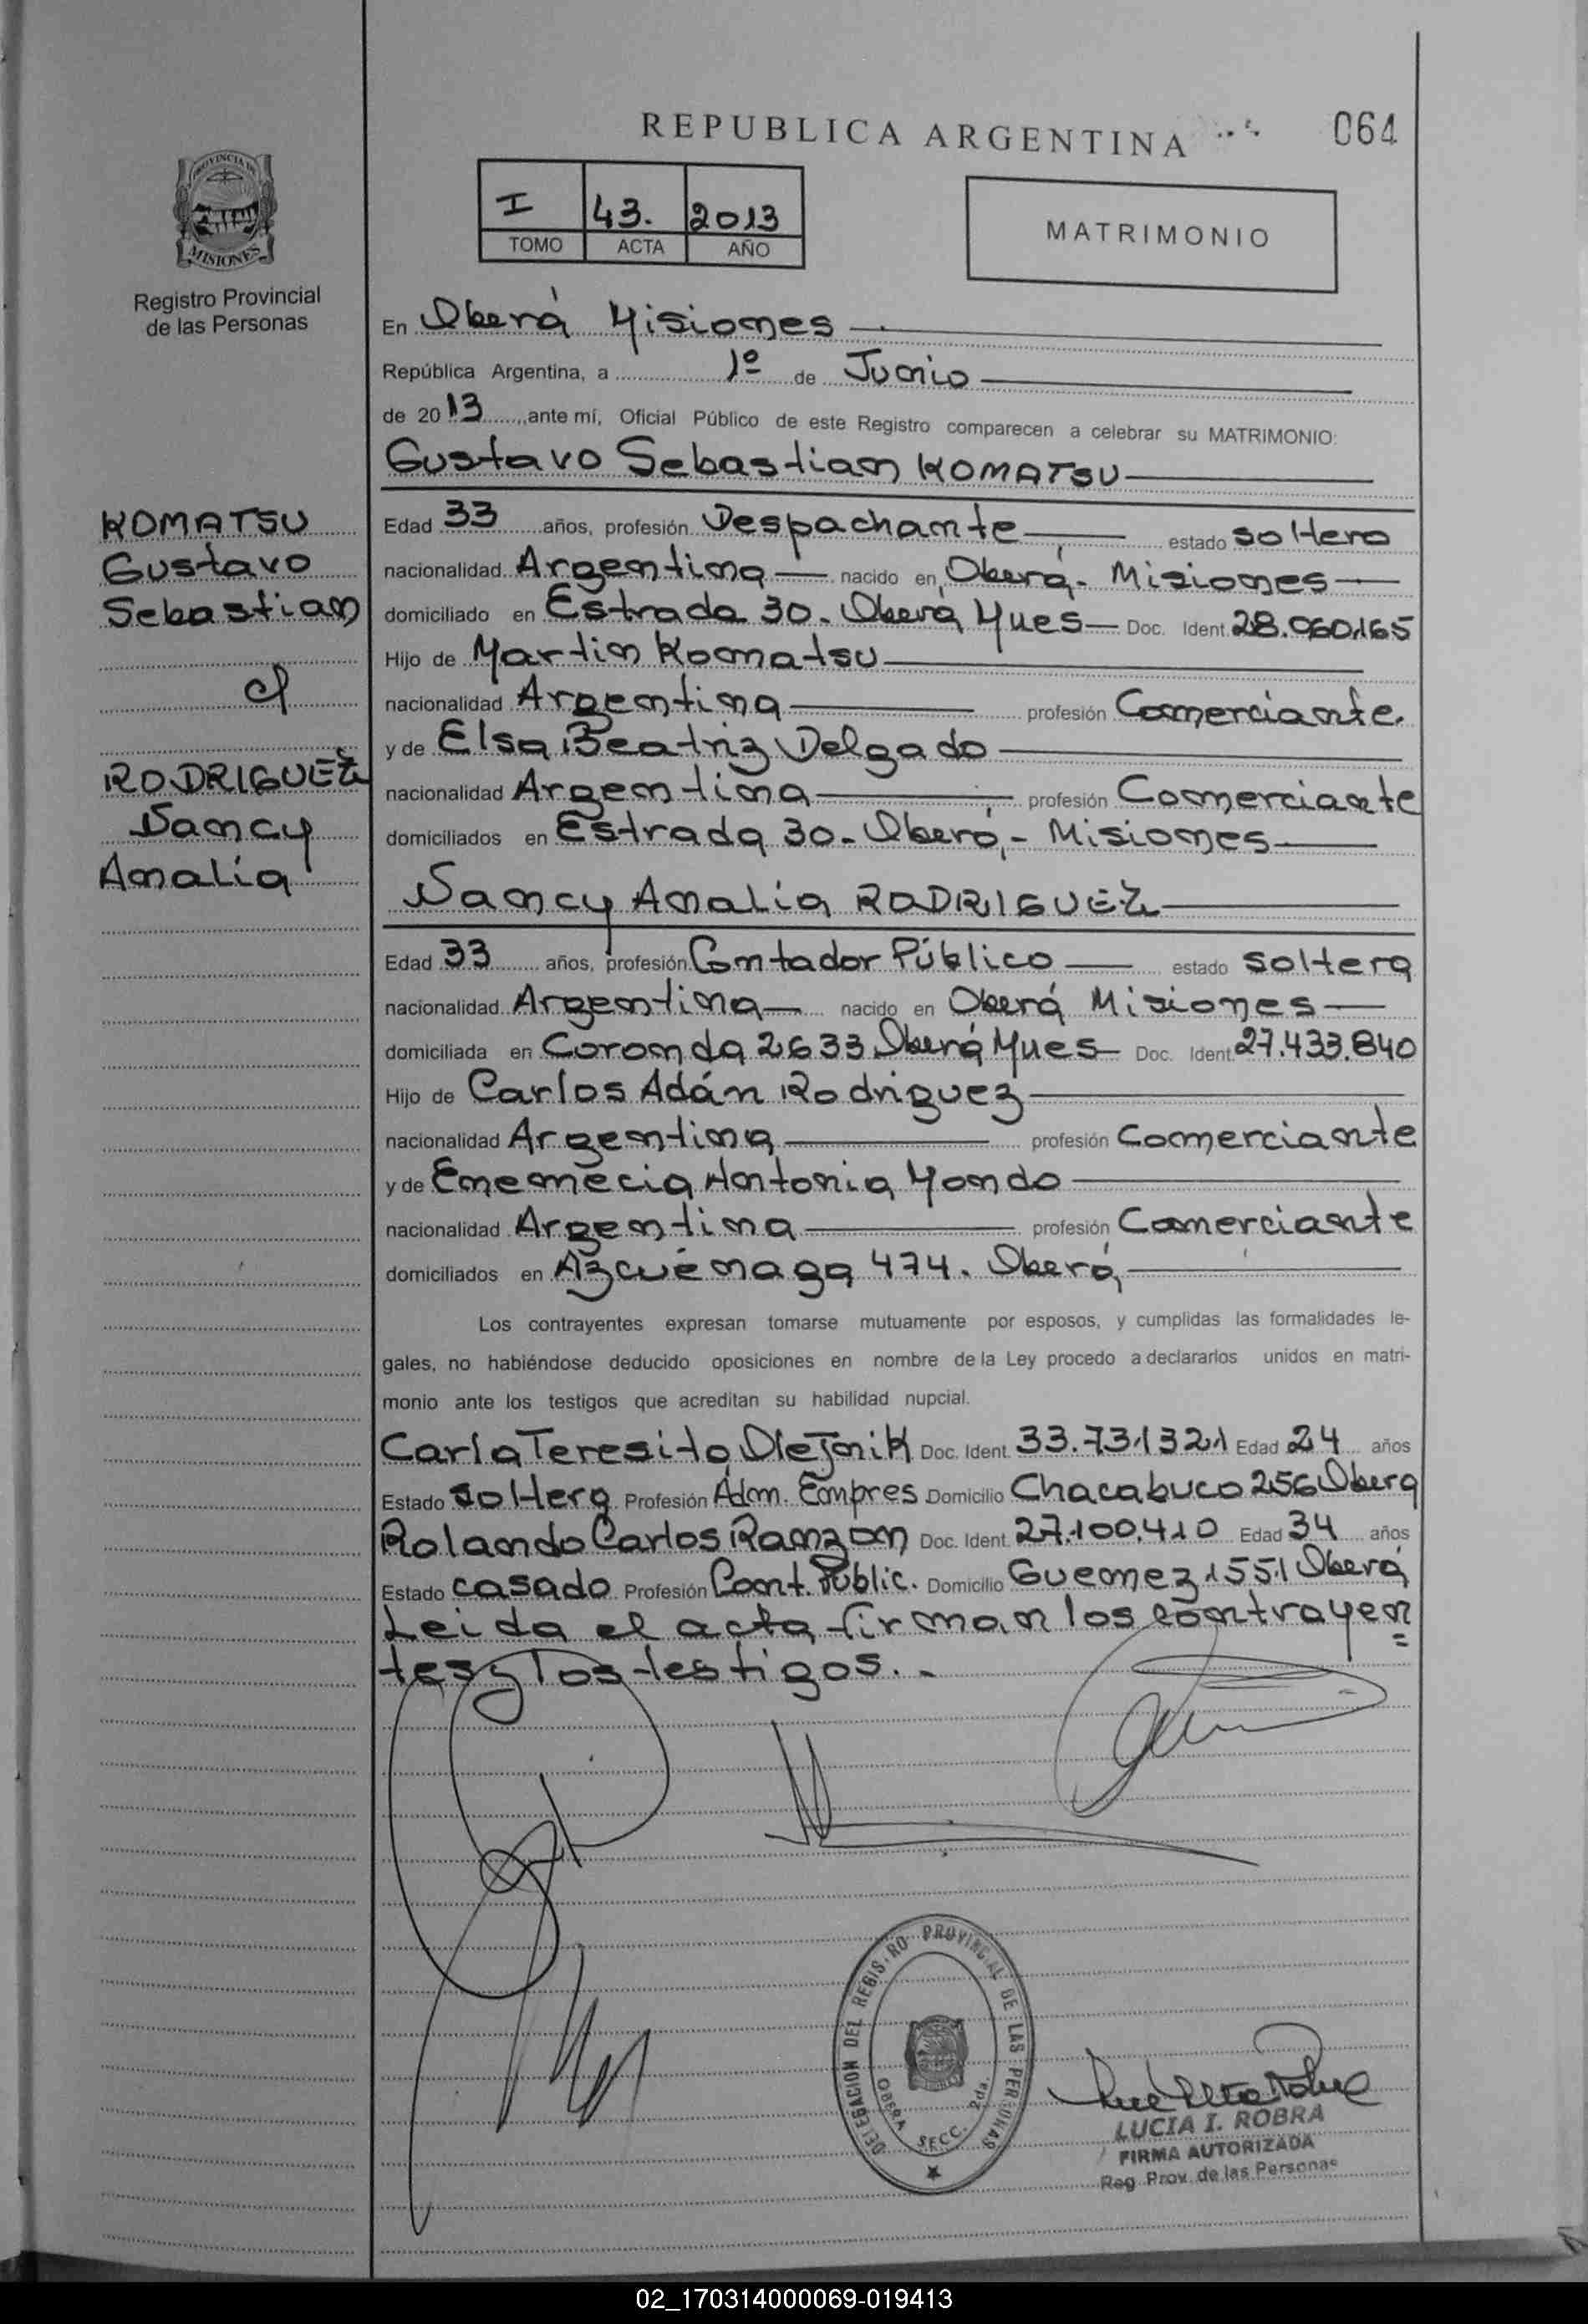 REPUBLICA ARGENTINA
064
PROVINCIA DE
MISIONES
Registro Provincial
de las Personas
I 43. 2013
TOMO ACTA AÑO
MATRIMONIO
En Oberá Misiones
República Argentina, a 1º de Junio
de 2013, ante mí, Oficial Público de este Registro comparecen a celebrar su MATRIMONIO:
Gustavo Sebastian KOMATSU
KOMATSU
Gustavo
Sebastian
c/
RODRIGUEZ
Nancy
Amalia
Edad 33 años, profesión Despachante estado soltero
nacionalidad Argentina nacido en Oberá - Misiones
domiciliado en Estrada 30 - Oberá Mnes Doc. Ident. 28.060.165
Hijo de Martin Komatsu
nacionalidad Argentina profesión Comerciante.
y de Elsa Beatriz Delgado
nacionalidad Argentina profesión Comerciante
domiciliados en Estrada 30 - Oberá - Misiones
Nancy Amalia RODRIGUEZ
Edad 33 años, profesión Contador Público estado soltera
nacionalidad Argentina nacido en Oberá Misiones
domiciliada en Coronda 2633 Oberá Mnes Doc. Ident 27.433.840
Hijo de Carlos Adán Rodriguez
nacionalidad Argentina profesión Comerciante
y de Antonia
nacionalidad Argentina profesión Comerciante
domiciliados en Azcuénaga 474. Oberá
Los contrayentes expresan tomarse mutuamente por esposos, y cumplidas las formalidades le-
gales, no habiéndose deducido oposiciones en nombre de la Ley procedo a declararlos unidos en matri-
monio ante los testigos que acreditan su habilidad nupcial.
Carla Teresita Olejnik Doc. Ident. 33.731321 Edad 24 años
Estado soltera Profesión Adm. Empres Domicilio Chacabuco 256 Oberá
Rolando Carlos Ramzon Doc. Ident. 27.100.410 Edad 34 años
Estado casado Profesión Cont. Públic. Domicilio Guemez 1551 Oberá
Leida el acta firman los contrayen=
tes y los testigos. -
DELEGACION DEL REGISTRO PROVINCIAL DE LAS PERSONAS
OBERA SECC. 2da.
LUCIA I. ROBRA
FIRMA AUTORIZADA
Reg. Prov. de las Personas
02_170314000069-019413